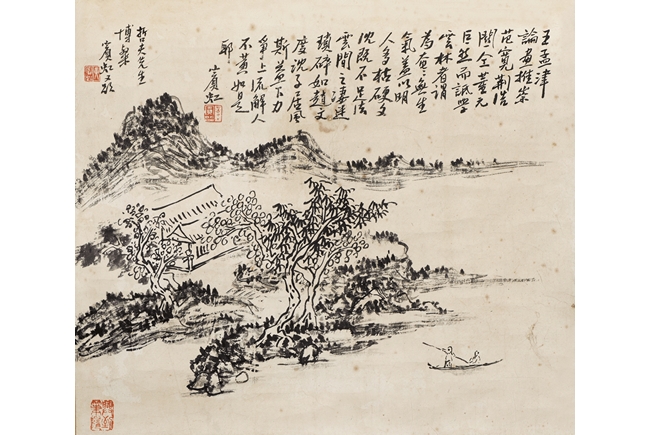 王孟津
論畫推崇
范寬荊浩
關仝董元
巨然而詆學
雲林者謂
為奄奄無生
氣蓋以明
人多枯硬文
沈既不足法
雲間之淒迷
瑣碎如趙文
度沈子居風
斯益下力
爭上流解人
不黃如是
耶
賓虹
哲夫先生
博粲
賓虹又題